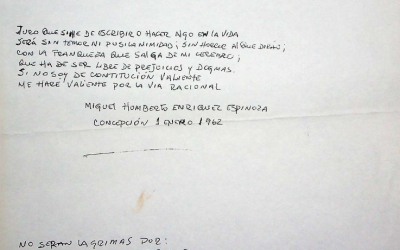 JURO QUE SI HE DE ESCRIBIR O HACER ALGO EN LA VIDA
SERÁ SIN TEMOR NI PUSILANIMIDAD; SIN HORROR AL QUE DIRÁN;
CON LA FRANQUEZA QUE SALGA DE MI CEREBRO;
QUE HA DE SER LIBRE DE PREJUICIOS Y DOGMAS.
SI NO SOY DE CONSTITUCIÓN VALIENTE
ME HARÉ VALIENTE POR LA VIA RACIONAL
MIGUEL HUMBERTO ENRIQUEZ ESPINOZA
CONCEPCIÓN 1 ENERO 1962
NO SERAN LAGRIMAS POR: